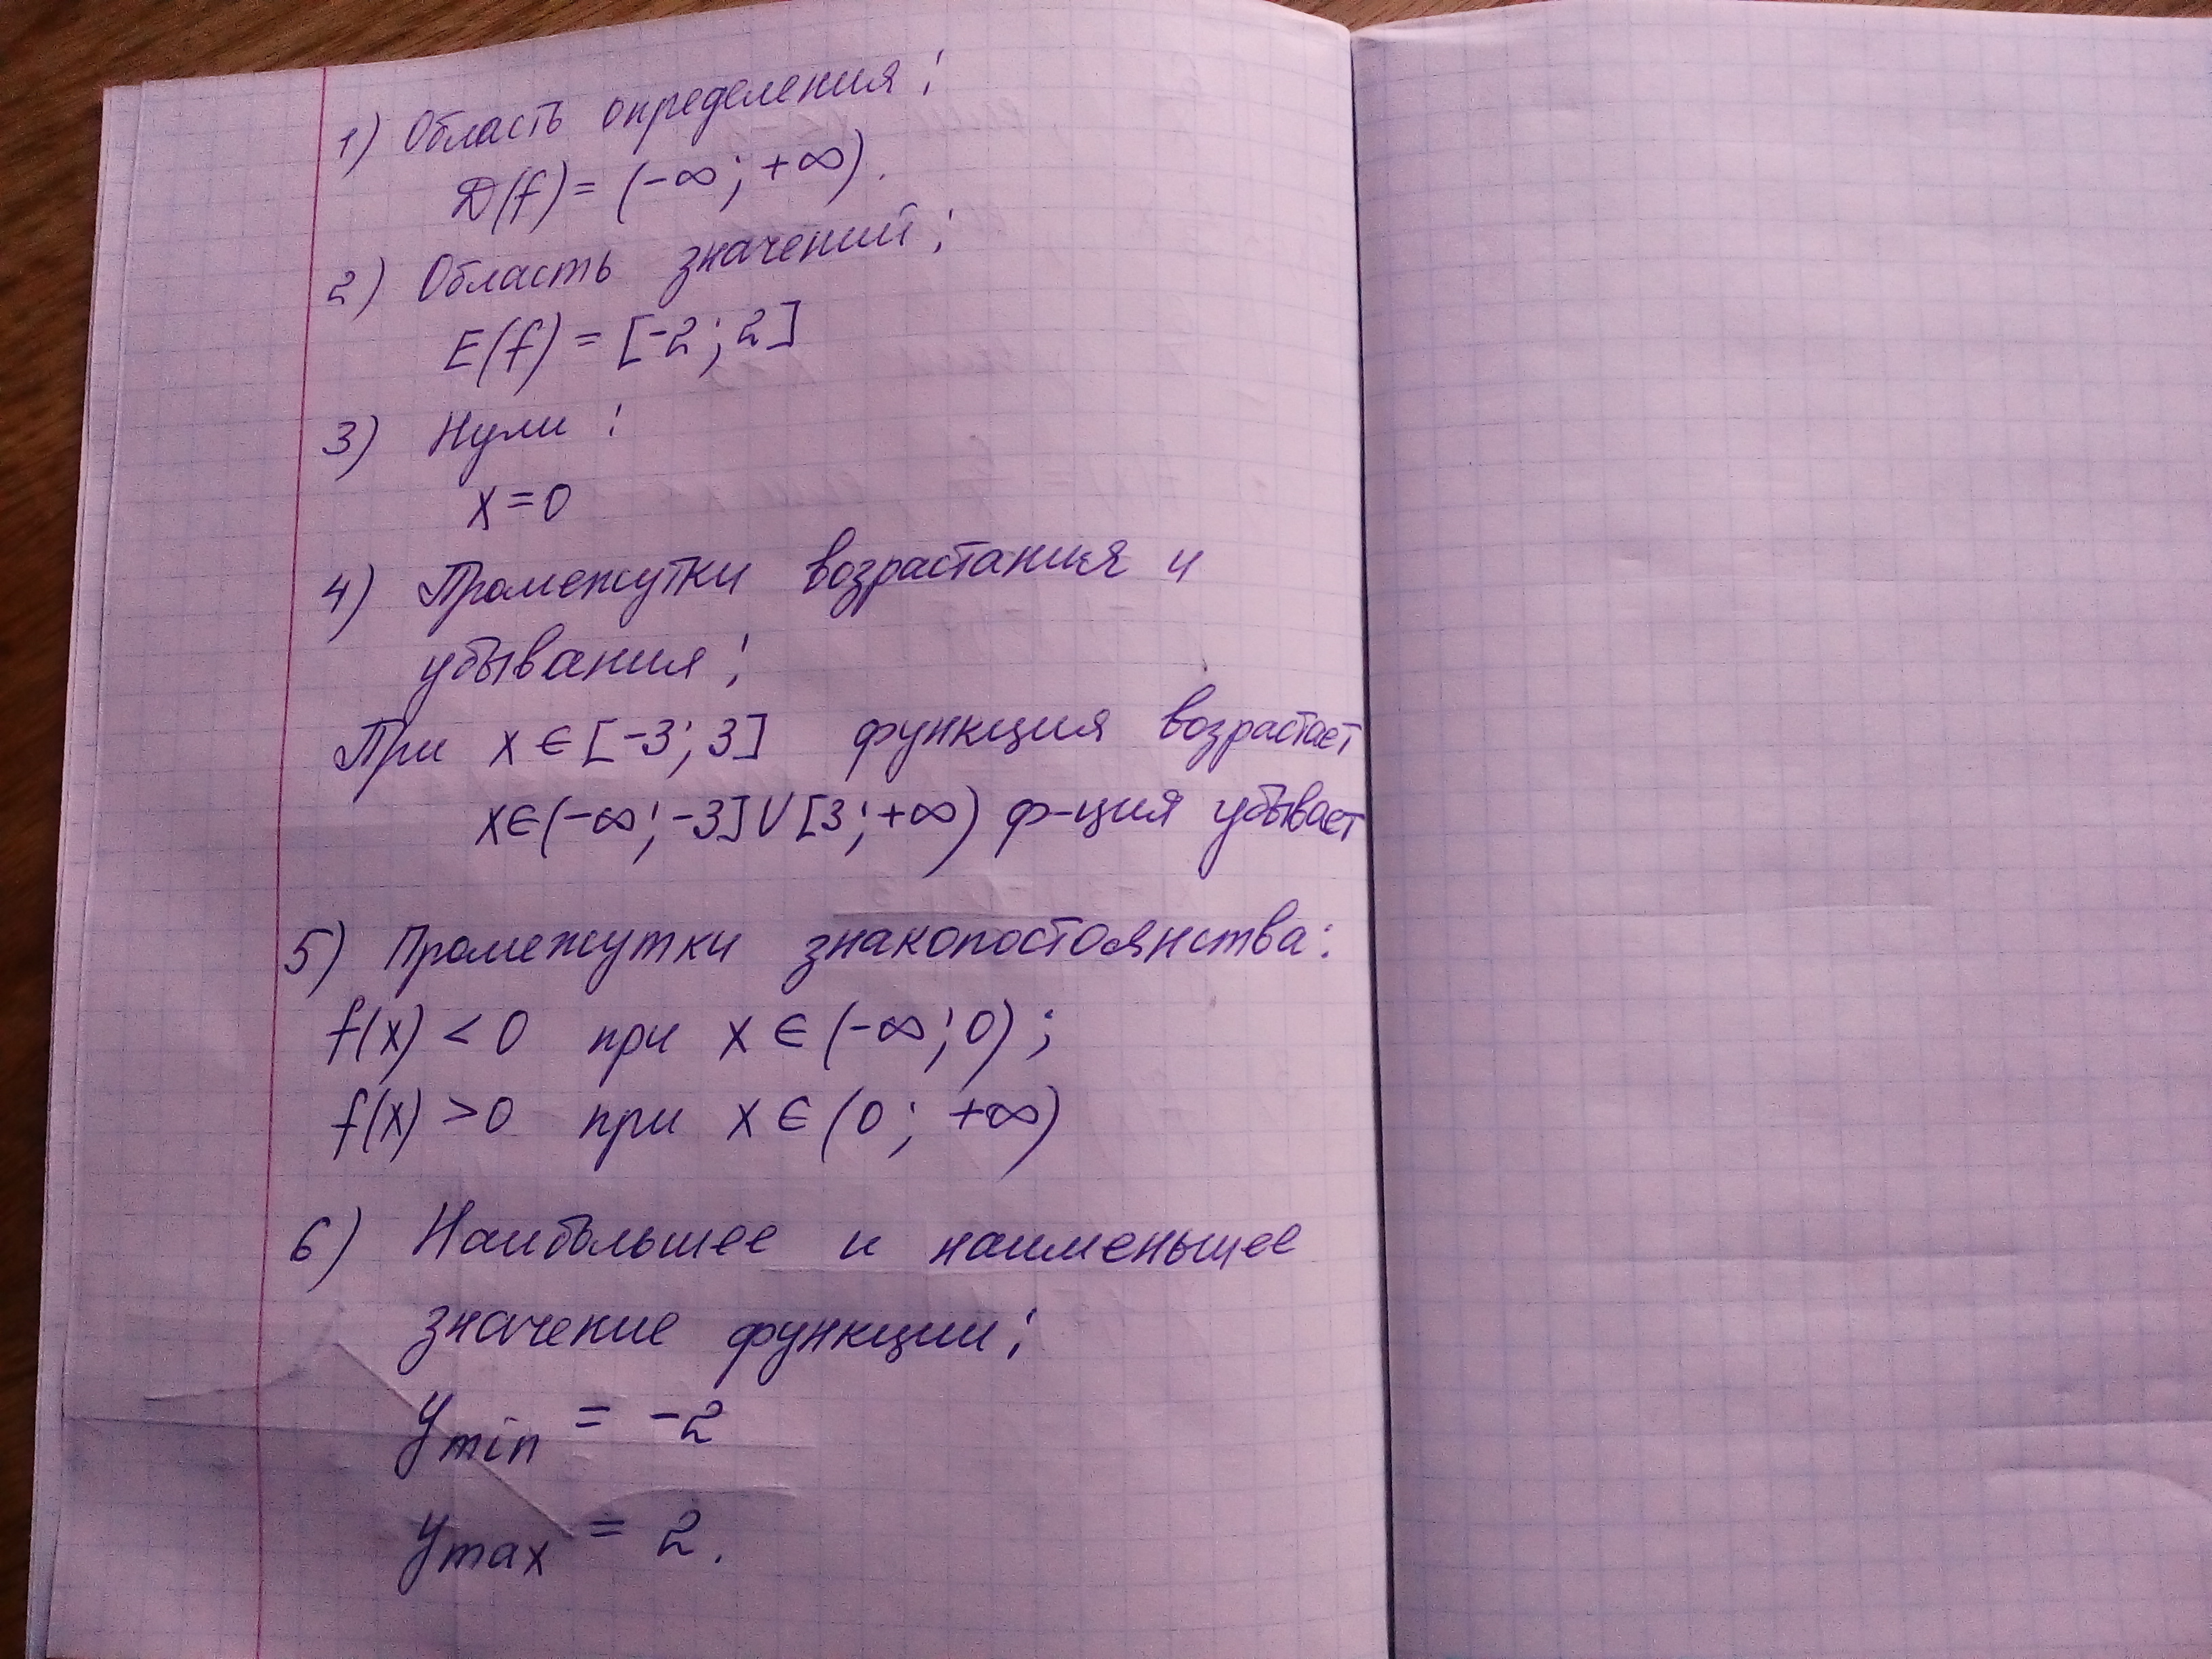 1) Область определения:
D(f) = (-∞; +∞).
2) Область значений:
E(f) = [-2; 2]
3) Нули:
x = 0
4) Промежутки возрастания и
убывания:
При x ∈ [-3; 3] функция возрастает
x ∈ (-∞; -3] U [3; +∞) ф-ция убывает
5) Промежутки знакопостоянства:
f(x) < 0 при x ∈ (-∞; 0);
f(x) > 0 при x ∈ (0; +∞)
6) Наибольшее и наименьшее
значение функции:
y min = -2
y max = 2.